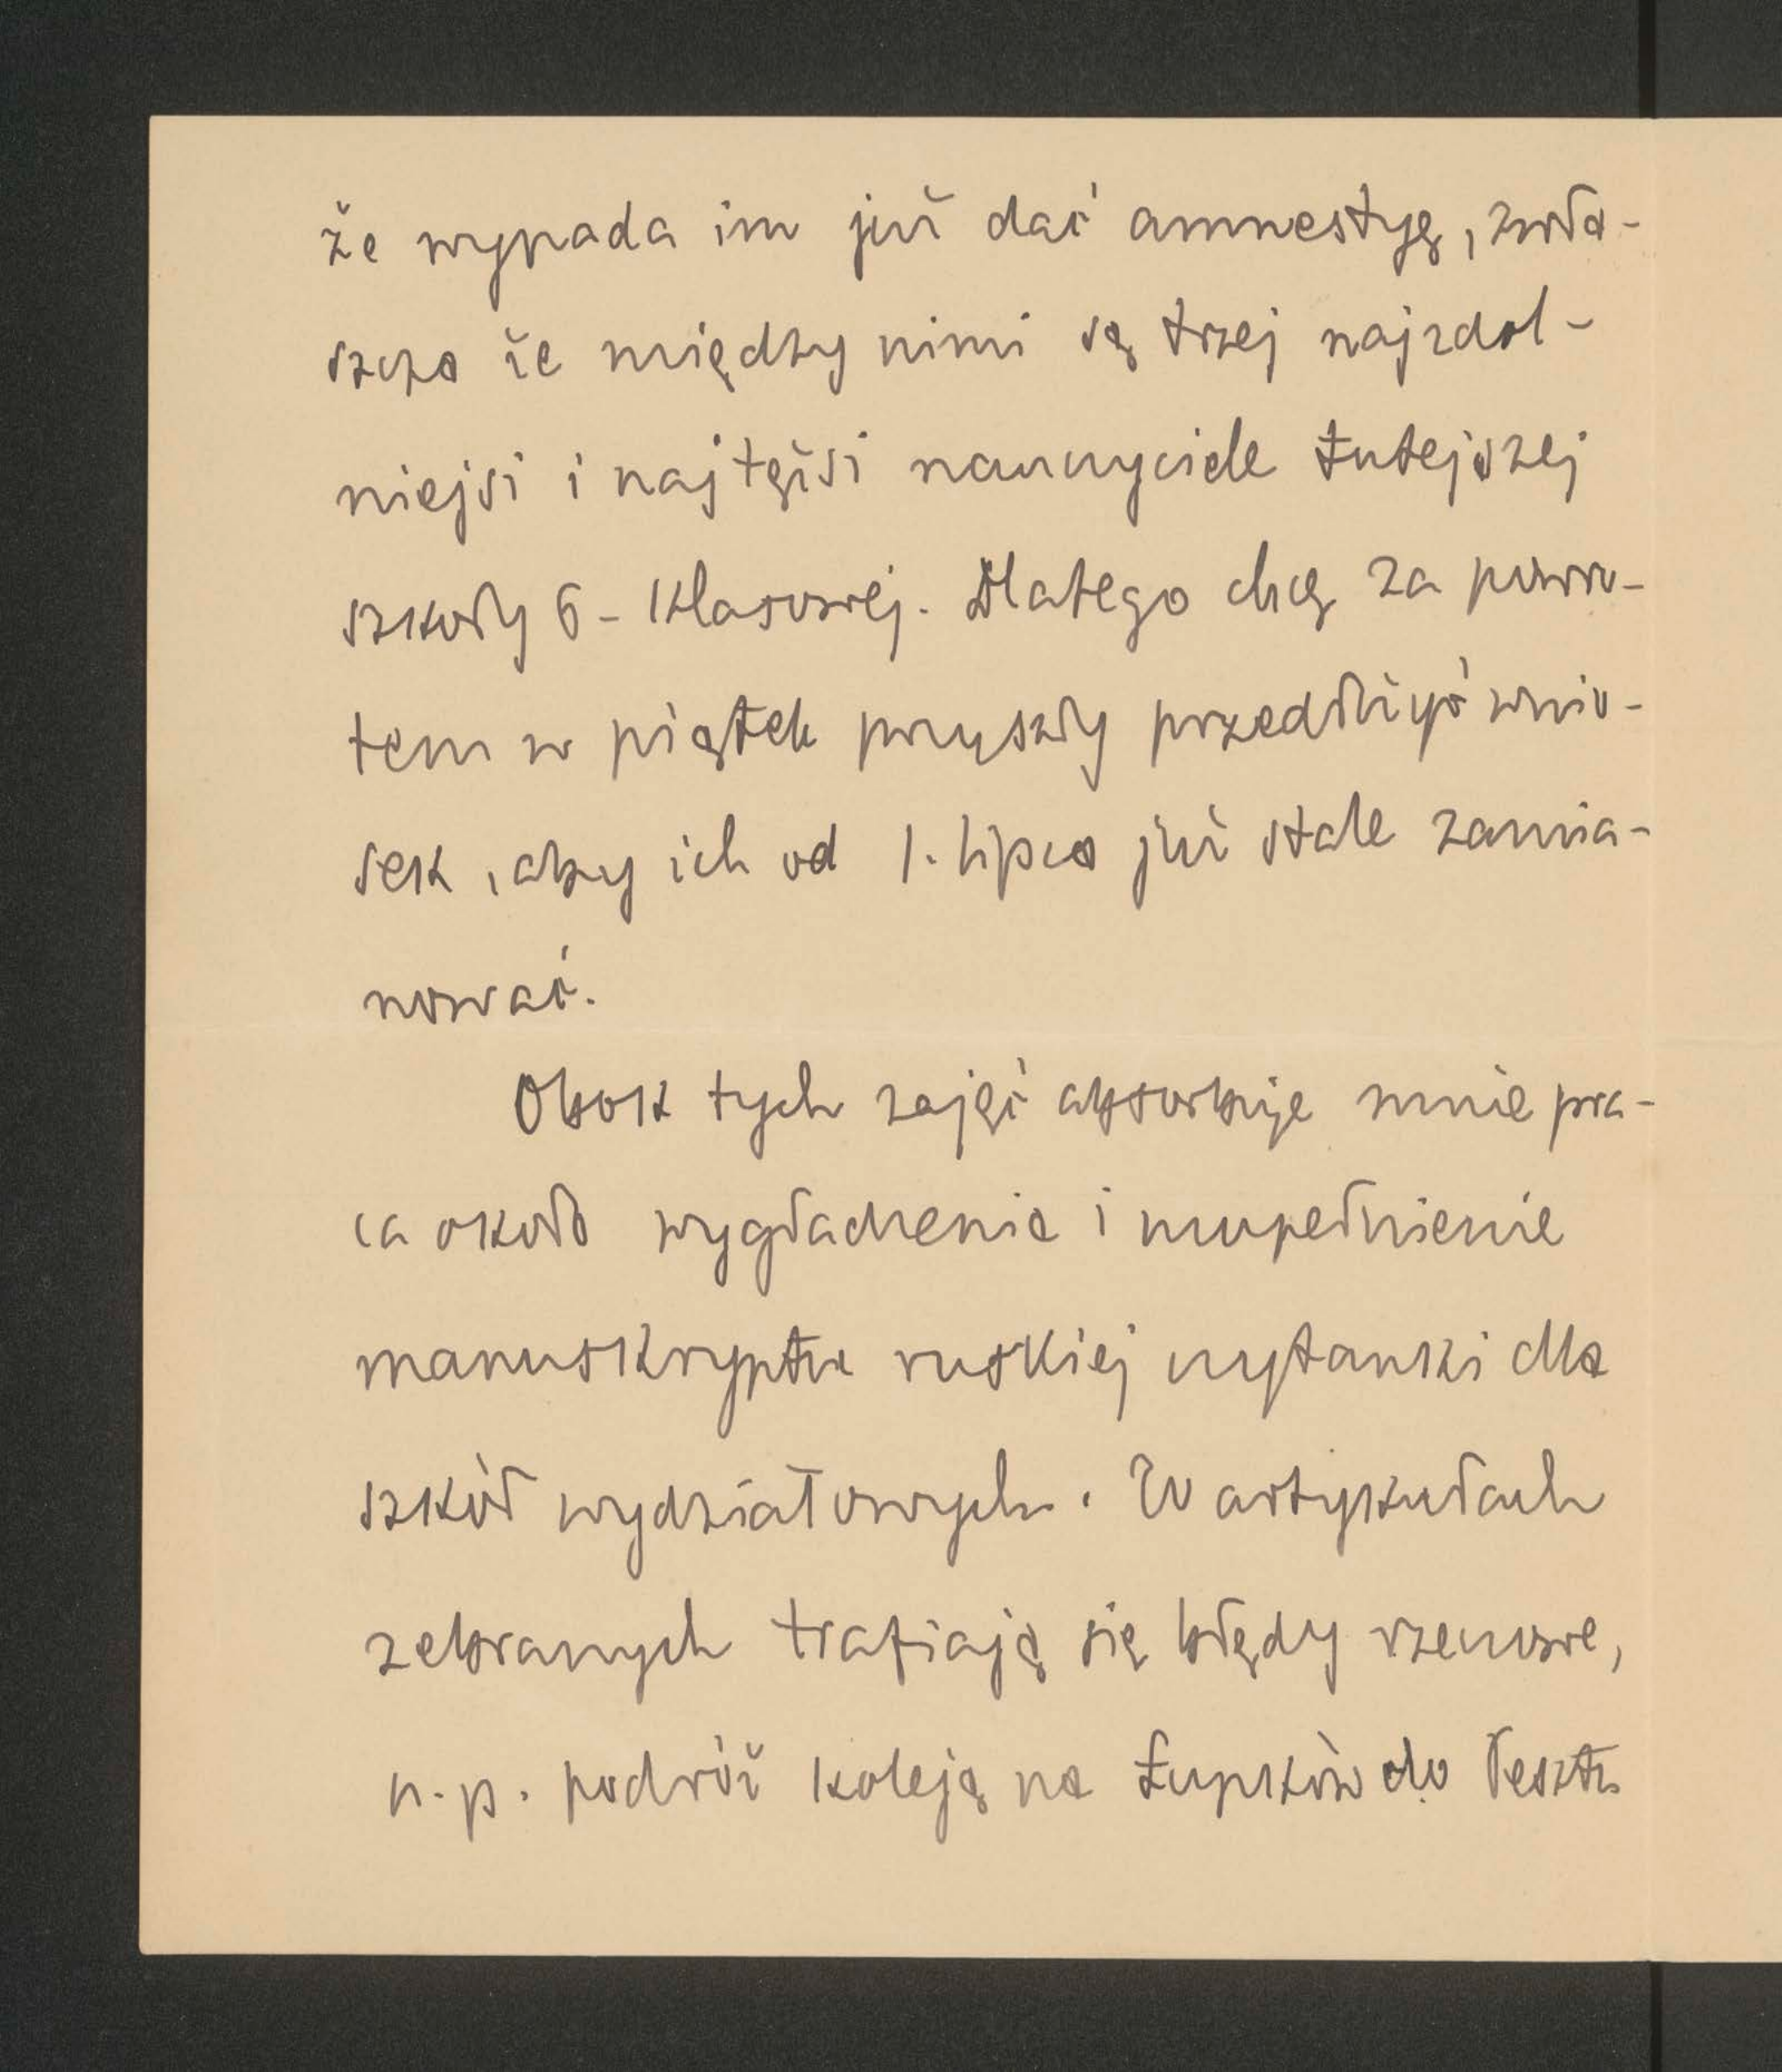 że wypada im już dać amnestyę, zwła-
szcza że między nimi są trzej najzdol-
niejsi i najtężsi nauczyciele tutejszej
szkoły 6-klasowej. Dlatego chcę za powro-
tem w piątek przyszły przedłożyć wnio-
sek, aby ich od 1. lipca już stale zamia-
nować.
Obok tych zajęć absorbuje mnie pra-
ca około wygładzenia i uzupełnienie
manuskryptu ruskiej czytanki dla
szkół wydziałowych. W artykułach
zebranych trafiają się błędy rzeczowe,
n.p. podróż koleją na Łupków do Pesztu